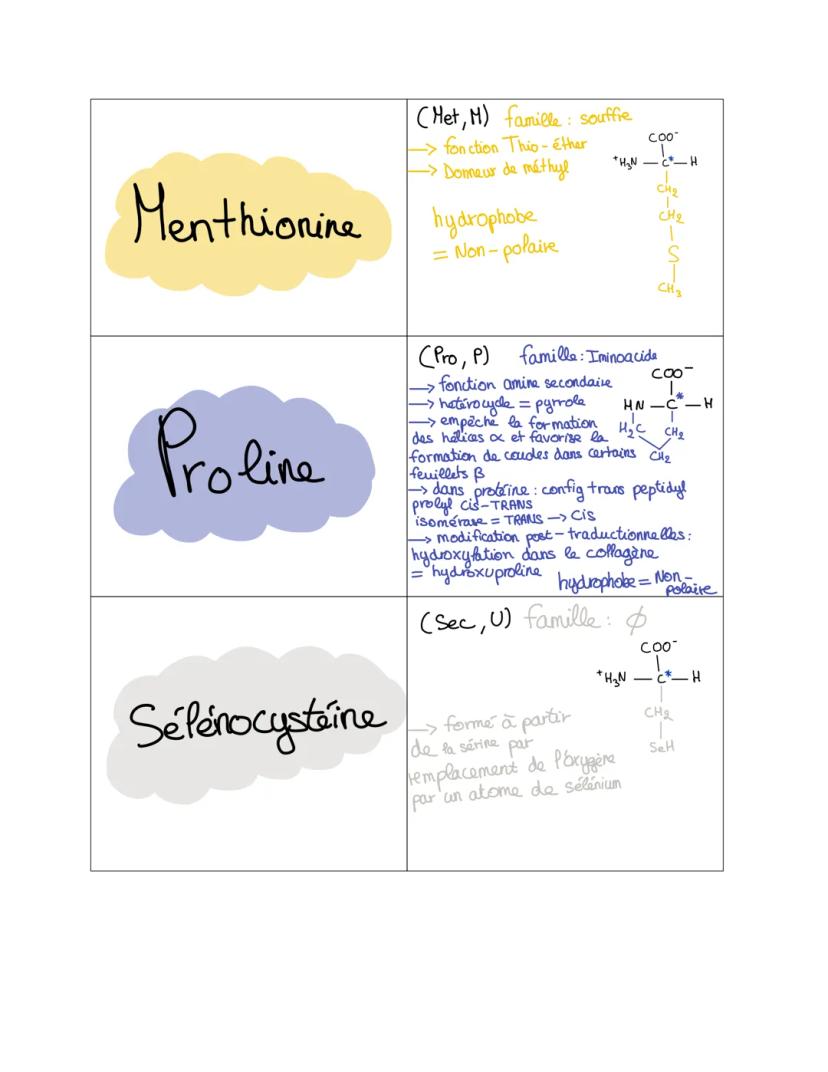 Menthionine
(Met, M) famille : souffre
→ fonction Thio-éther
→ Donneur de méthyl
hydrophobe
= Non-polaire
COO⁻
⁺H₃N — C* — H
CH₂
CH₂
S
CH₃
Proline
(Pro, P) famille : Iminoacide
→ fonction amine secondaire
→ hétérocycle = pyrrole
→ empêche la formation
des hélices α et favorise la
formation de coudes dans certains
feuillets β
→ dans protéine : config trans peptidyl
prolyl cis-TRANS
isomérase = TRANS → cis
→ modification post-traductionnelles :
hydroxylation dans le collagène
= hydroxyproline
hydrophobe = Non-
polaire
COO⁻
HN — C* — H
H₂C CH₂
CH₂
Sélénocystéine
(Sec, U) famille : ∅
→ formé à partir
de la sérine par
remplacement de l'oxygène
par un atome de sélénium
COO⁻
⁺H₃N — C* — H
CH₂
SeH